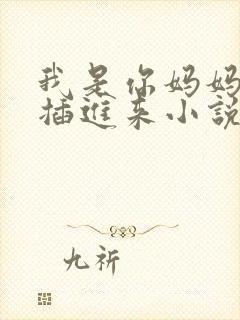 我是你妈妈
插進来小説
九祈